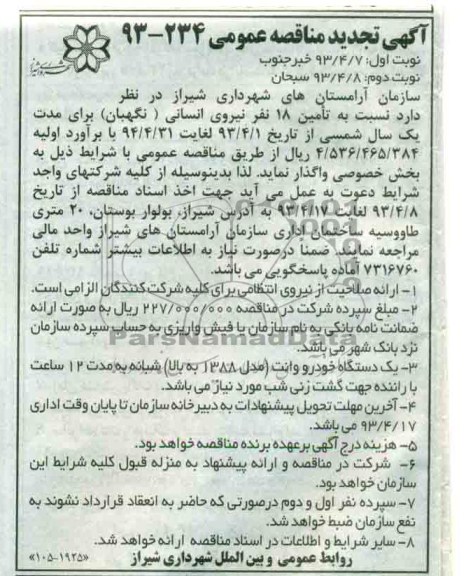 آگهی تجدید مناقصه عمومی ۲۳۴-۹۳
نوبت اول: ۹۳/۴/۷ خبرجنوب
نوبت دوم: ۹۳/۴/۸ سبحان
سازمان آرامستان های شهرداری شیراز در نظر
دارد نسبت به تأمین ۱۸ نفر نیروی انسانی ( نگهبان) برای مدت
یک سال شمسی از تاریخ ۹۳/۴/۱ لغایت ۹۴/۴/۳۱ با برآورد اولیه
۴/۵۳۶/۴۶۵/۳۸۴ ریال از طریق مناقصه عمومی با شرایط ذیل به
بخش خصوصی واگذار نماید. لذا بدینوسیله از کلیه شرکتهای واجد
شرایط دعوت به عمل می آید جهت اخذ اسناد مناقصه از تاریخ
۹۳/۴/۸ لغایت ۹۳/۴/۱۷ به آدرس شیراز، بولوار بوستان، ۲۰ متری
طاووسیه ساختمان اداری سازمان آرامستان های شیراز واحد مالی
مراجعه نمایند. ضمنا درصورت نیاز به اطلاعات بیشتر شماره تلفن
۷۳۱۶۷۶۰ آماده پاسخگویی می باشد.
۱- ارائه صلاحیت از نیروی انتظامی برای کلیه شرکت کنندگان الزامی است.
۲- مبلغ سپرده شرکت در مناقصه ۲۲۷/۰۰۰/۰۰۰ ریال به صورت ارائه
ضمانت نامه بانکی به نام سازمان یا فیش واریزی به حساب سپرده سازمان
نزد بانک شهر می باشد.
ParsNamadData
۳- یک دستگاه خودرو وانت (مدل ۱۳۸۸ به بالا) شبانه به مدت ۱۲ ساعت
با راننده جهت گشت زنی شب مورد نیاز می باشد.
۴- آخرین مهلت تحویل پیشنهادات به دبیرخانه سازمان تا پایان وقت اداری
۹۳/۴/۱۷ می باشد.
۵- هزینه درج آگهی برعهده برنده مناقصه خواهد بود.
۶- شرکت در مناقصه و ارائه پیشنهاد به منزله قبول کلیه شرایط این
سازمان خواهد بود.
۷- سپرده نفر اول و دوم درصورتی که حاضر به انعقاد قرارداد نشوند به
نفع سازمان ضبط خواهد شد.
۸- سایر شرایط و اطلاعات در اسناد مناقصه ارائه خواهد شد.
روابط عمومی و بین الملل شهرداری شیراز «۱۰۵-۱۹۲۵»